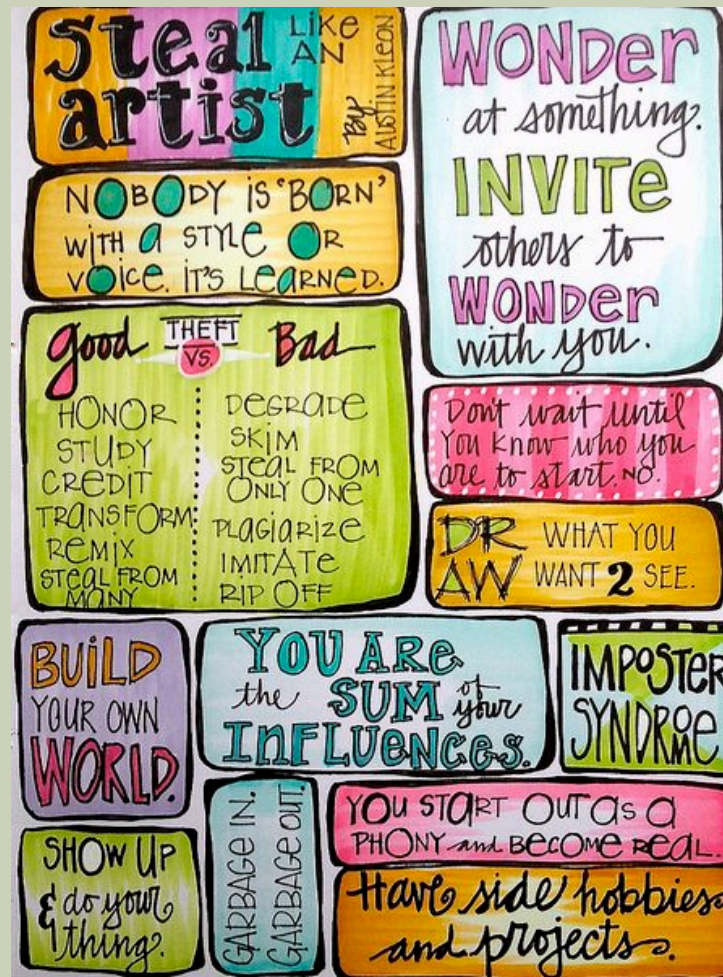 steal LIKE
AN
artist
By
AUSTIN KLEON
NOBODY IS "BORN'
WITH a STYLE OR
VOICE. IT'S LEARNED.
good THEFT Bad
VS.
HONOR
STUDY
CREDIT
TRANSFORM
REMIX
STEAL FROM
MANY
DEGRADE
SKIM
STEAL FROM
ONLY ONE
PLAGIARIZE
IMITATE
RIP OFF
WONDER
at something.
INVITE
others to
WONDER
with you.
Don't wait until
You know who you
are to start. NO.
DR WHAT YOU
AW WANT 2 SEE.
BUILD
YOUR OWN
WORLD.
YOU ARE
the SUM of your
INFLUENCES.
IMPOSTER
SYNDROME
SHOW UP
& do your
thing.
GARBAGE IN.
GARBAGE OUT.
YOU START OUT as a
PHONY and BECOME REAL.
Have side hobbies
and projects.